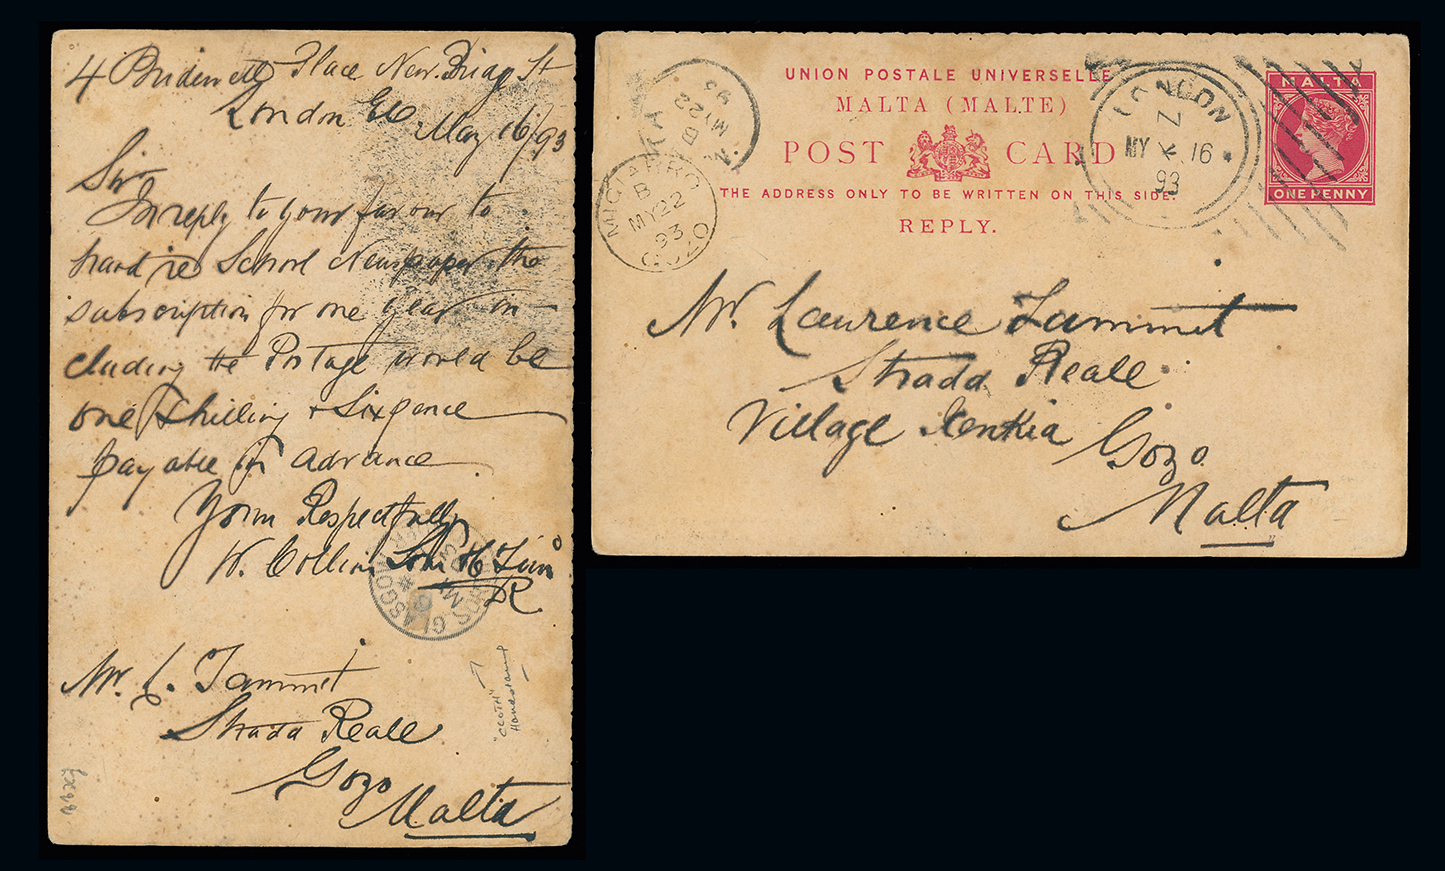 4 Bridewell Place New Bridg St
London EC. May 16/93
Sir
In reply to your favour to
hand re School Newspaper the
subscription for one year in-
cluding the Postage would be
one Shilling & Sixpence
payable in advance
Yours Respectfully
W. Collins Sons & Co
Mr. L. Tammit
Strada Reale
Gozo
Malta
"CLOTH"
GLASGOW
UNION POSTALE UNIVERSELLE
MALTA (MALTE)
POST CARD
THE ADDRESS ONLY TO BE WRITTEN ON THIS SIDE.
REPLY.
MALTA
ONE PENNY
LONDON
Z
MY 16
93
MY 22
93
MIGIARRO
B
MY 22
93
GOZO
Mr. Laurence Tammit
Strada Reale
Village Xenkia
Gozo
Malta